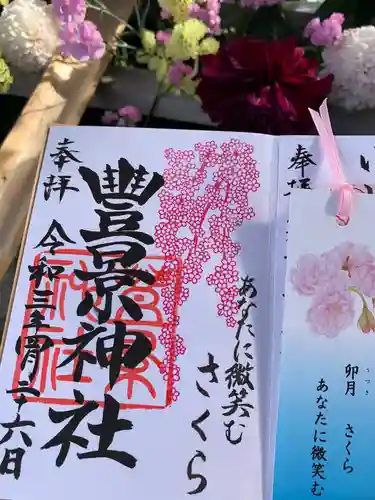 い
卯月 さくら
うづき
あなたに微笑む
奉拝
あなたに微笑む
さくら
豊景神社
奉拝
令和三年四月二十六日